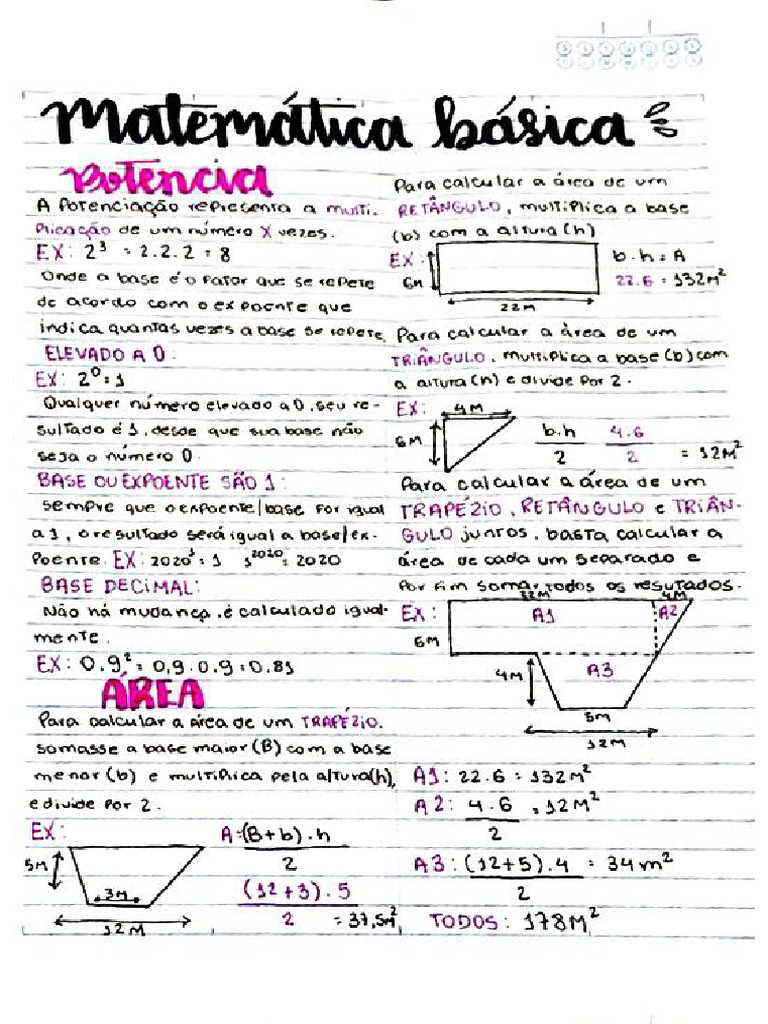 Matemática básica
Potencia
A Potenciação representa a multi-
plicação de um número X vezes.
EX: 2³ = 2.2.2 = 8
Onde a base é o fator que se repete
de acordo com o expoente que
indica quantas vezes a base se repete.
ELEVADO A 0:
EX: 2⁰ = 1
Qualquer número elevado a 0, seu re-
sultado é 1, desde que sua base não
seja o número 0.
BASE OU EXPOENTE SÃO 1:
sempre que o expoente/base for igual
a 1, o resultado será igual a base/ex-
poente. EX: 2020¹ = 2020 1²⁰²⁰ = 2020
BASE DECIMAL:
Não há mudança, é calculado igual-
mente.
EX: 0.9² = 0,9.0.9 = 0.81
ÁREA
Para calcular a área de um TRAPÉZIO.
somasse a base maior (B) com a base
menor (b) e multiplica pela altura (h),
e divide por 2.
EX:
5M
3M
12M
A = (B+b).h
2
(12+3).5
2 = 37,5M²
Para calcular a área de um
RETÂNGULO, multiplica a base
(b) com a altura (h)
EX:
6M
22M
b.h = A
22.6 = 132M²
Para calcular a área de um
TRIÂNGULO, multiplica a base (b) com
a altura (h) e divide por 2.
EX:
4M
6M
b.h 4.6
2 2 = 12M²
Para calcular a área de um
TRAPÉZIO, RETÂNGULO e TRIÂN-
GULO juntos, basta calcular a
área de cada um separado e
por fim somar todos os resutados.
EX:
22M 4M
A1 A2
6M
4M A3
5M
12M
A1: 22.6 = 132M²
A2: 4.6 = 12M²
2
A3: (12+5).4 = 34m²
2
TODOS: 178M²